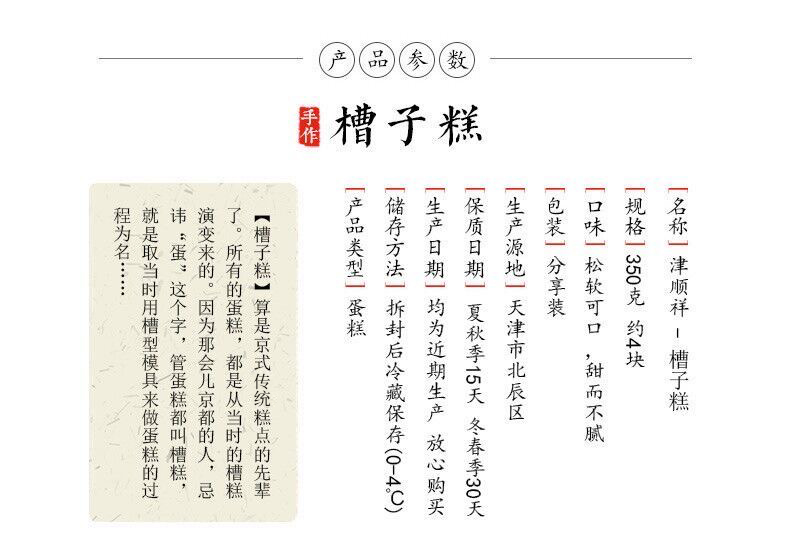 产品参数
手作
槽子糕
名称 津顺祥-槽子糕
规格 350克 约4块
口味 松软可口,甜而不腻
包装 分享装
生产源地 天津市北辰区
保质日期 夏秋季15天 冬春季30天
生产日期 均为近期生产 放心购买
储存方法 拆封后冷藏保存(0-4℃)
产品类型 蛋糕
【槽子糕】算是京式传统糕点的先辈
了。所有的蛋糕，都是从当时的槽糕
演变来的。因为那会儿京都的人，忌
讳“蛋”这个字，管蛋糕都叫槽糕，
就是取当时用槽型模具来做蛋糕的过
程为名……